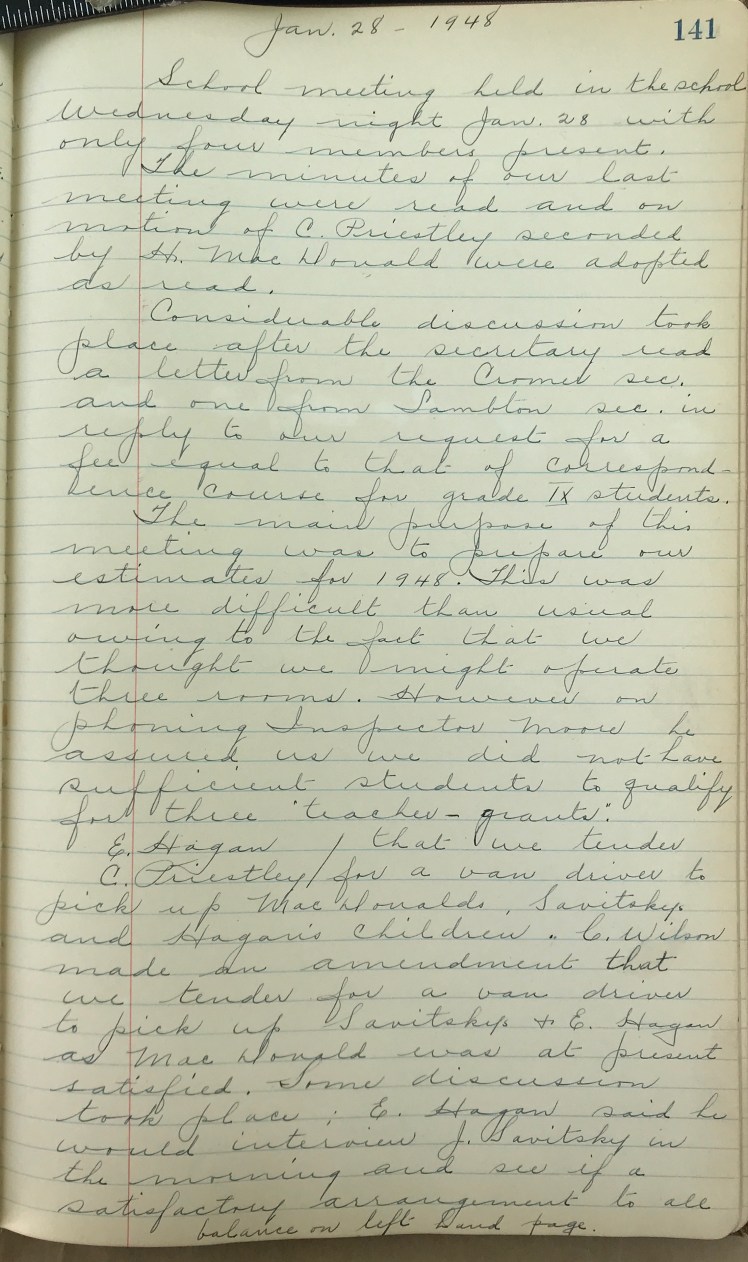 Jan. 28 - 1948
141
School meeting held in the school
Wednesday night Jan. 28 with
only four members present.
The minutes of our last
meeting were read and on
motion of C. Priestley seconded
by H. MacDonald were adopted
as read.
Considerable discussion took
place after the secretary read
a letter from the Cromer sec.
and one from Lambton sec. in
reply to our request for a
fee equal to that of correspond-
ence course for grade IX students.
The main purpose of this
meeting was to prepare our
estimates for 1948. This was
more difficult than usual
owing to the fact that we
thought we might operate
three rooms. However on
phoning Inspector Moore he
assured us we did not have
sufficient students to qualify
for three "teacher-grants".
E. Hagan / that we tender
C. Priestley / for a van driver to
pick up MacDonalds, Savitskys
and Hagan's children. C. Wilson
made an amendment that
we tender for a van driver
to pick up Savitskys & E. Hagan
as MacDonald was at present
satisfied. Some discussion
took place; E. Hagan said he
would interview J. Savitsky in
the morning and see if a
satisfactory arrangement to all
balance on left hand page.